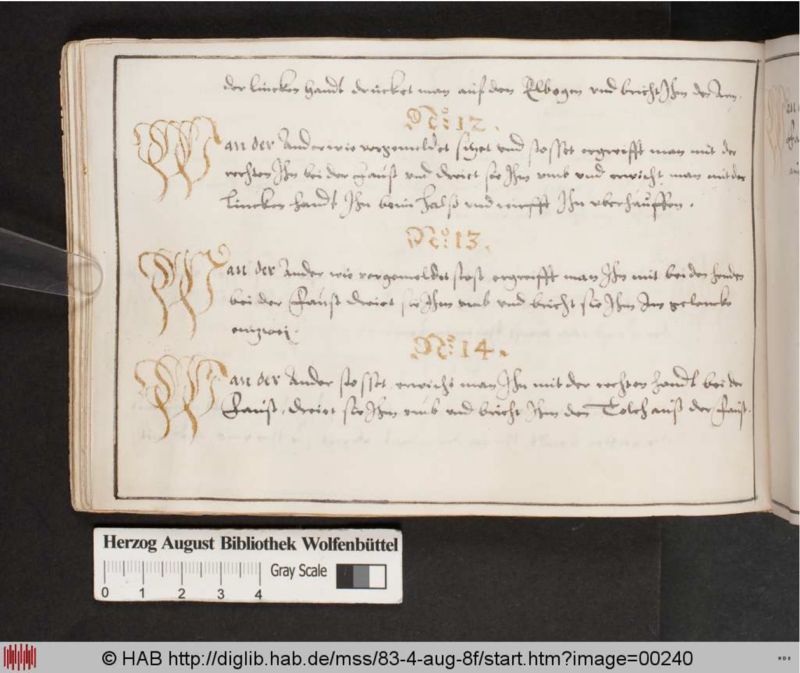 der lincken handt drucket man auf den Elbogen vnd bricht Ihm den Arm.
No: 12.
Wan der Ander wie vorgemeldet sizet vnd stosset ergreifft man mit der
rechten Ihn bei der Faust vnd dreiet sie Ihm vmb vnd erwicht man mit der
lincken handt Ihn beim halß vnd wirfft Ihn vberhauffen.
No: 13.
Wan der Ander wie vorgemeldet stost ergreifft man Ihn mit beiden henden
bei der Faust dreiet sie Ihm vmb vnd bricht sie Ihm Im gelencke
entzwei.
No: 14.
Wan der Ander stosset erwicht man Ihn mit der rechten handt bei der
Faust, dreiet sie Ihm vmb vnd bricht Ihm den Tolch auß der Faust.
Herzog August Bibliothek Wolfenbüttel
0 1 2 3 4 Gray Scale
© HAB http://diglib.hab.de/mss/83-4-aug-8f/start.htm?image=00240